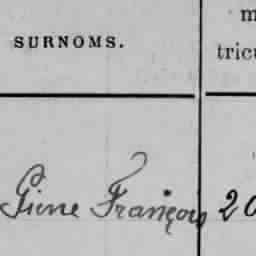 m
SURNOMS.
tricu
Pierre François 20